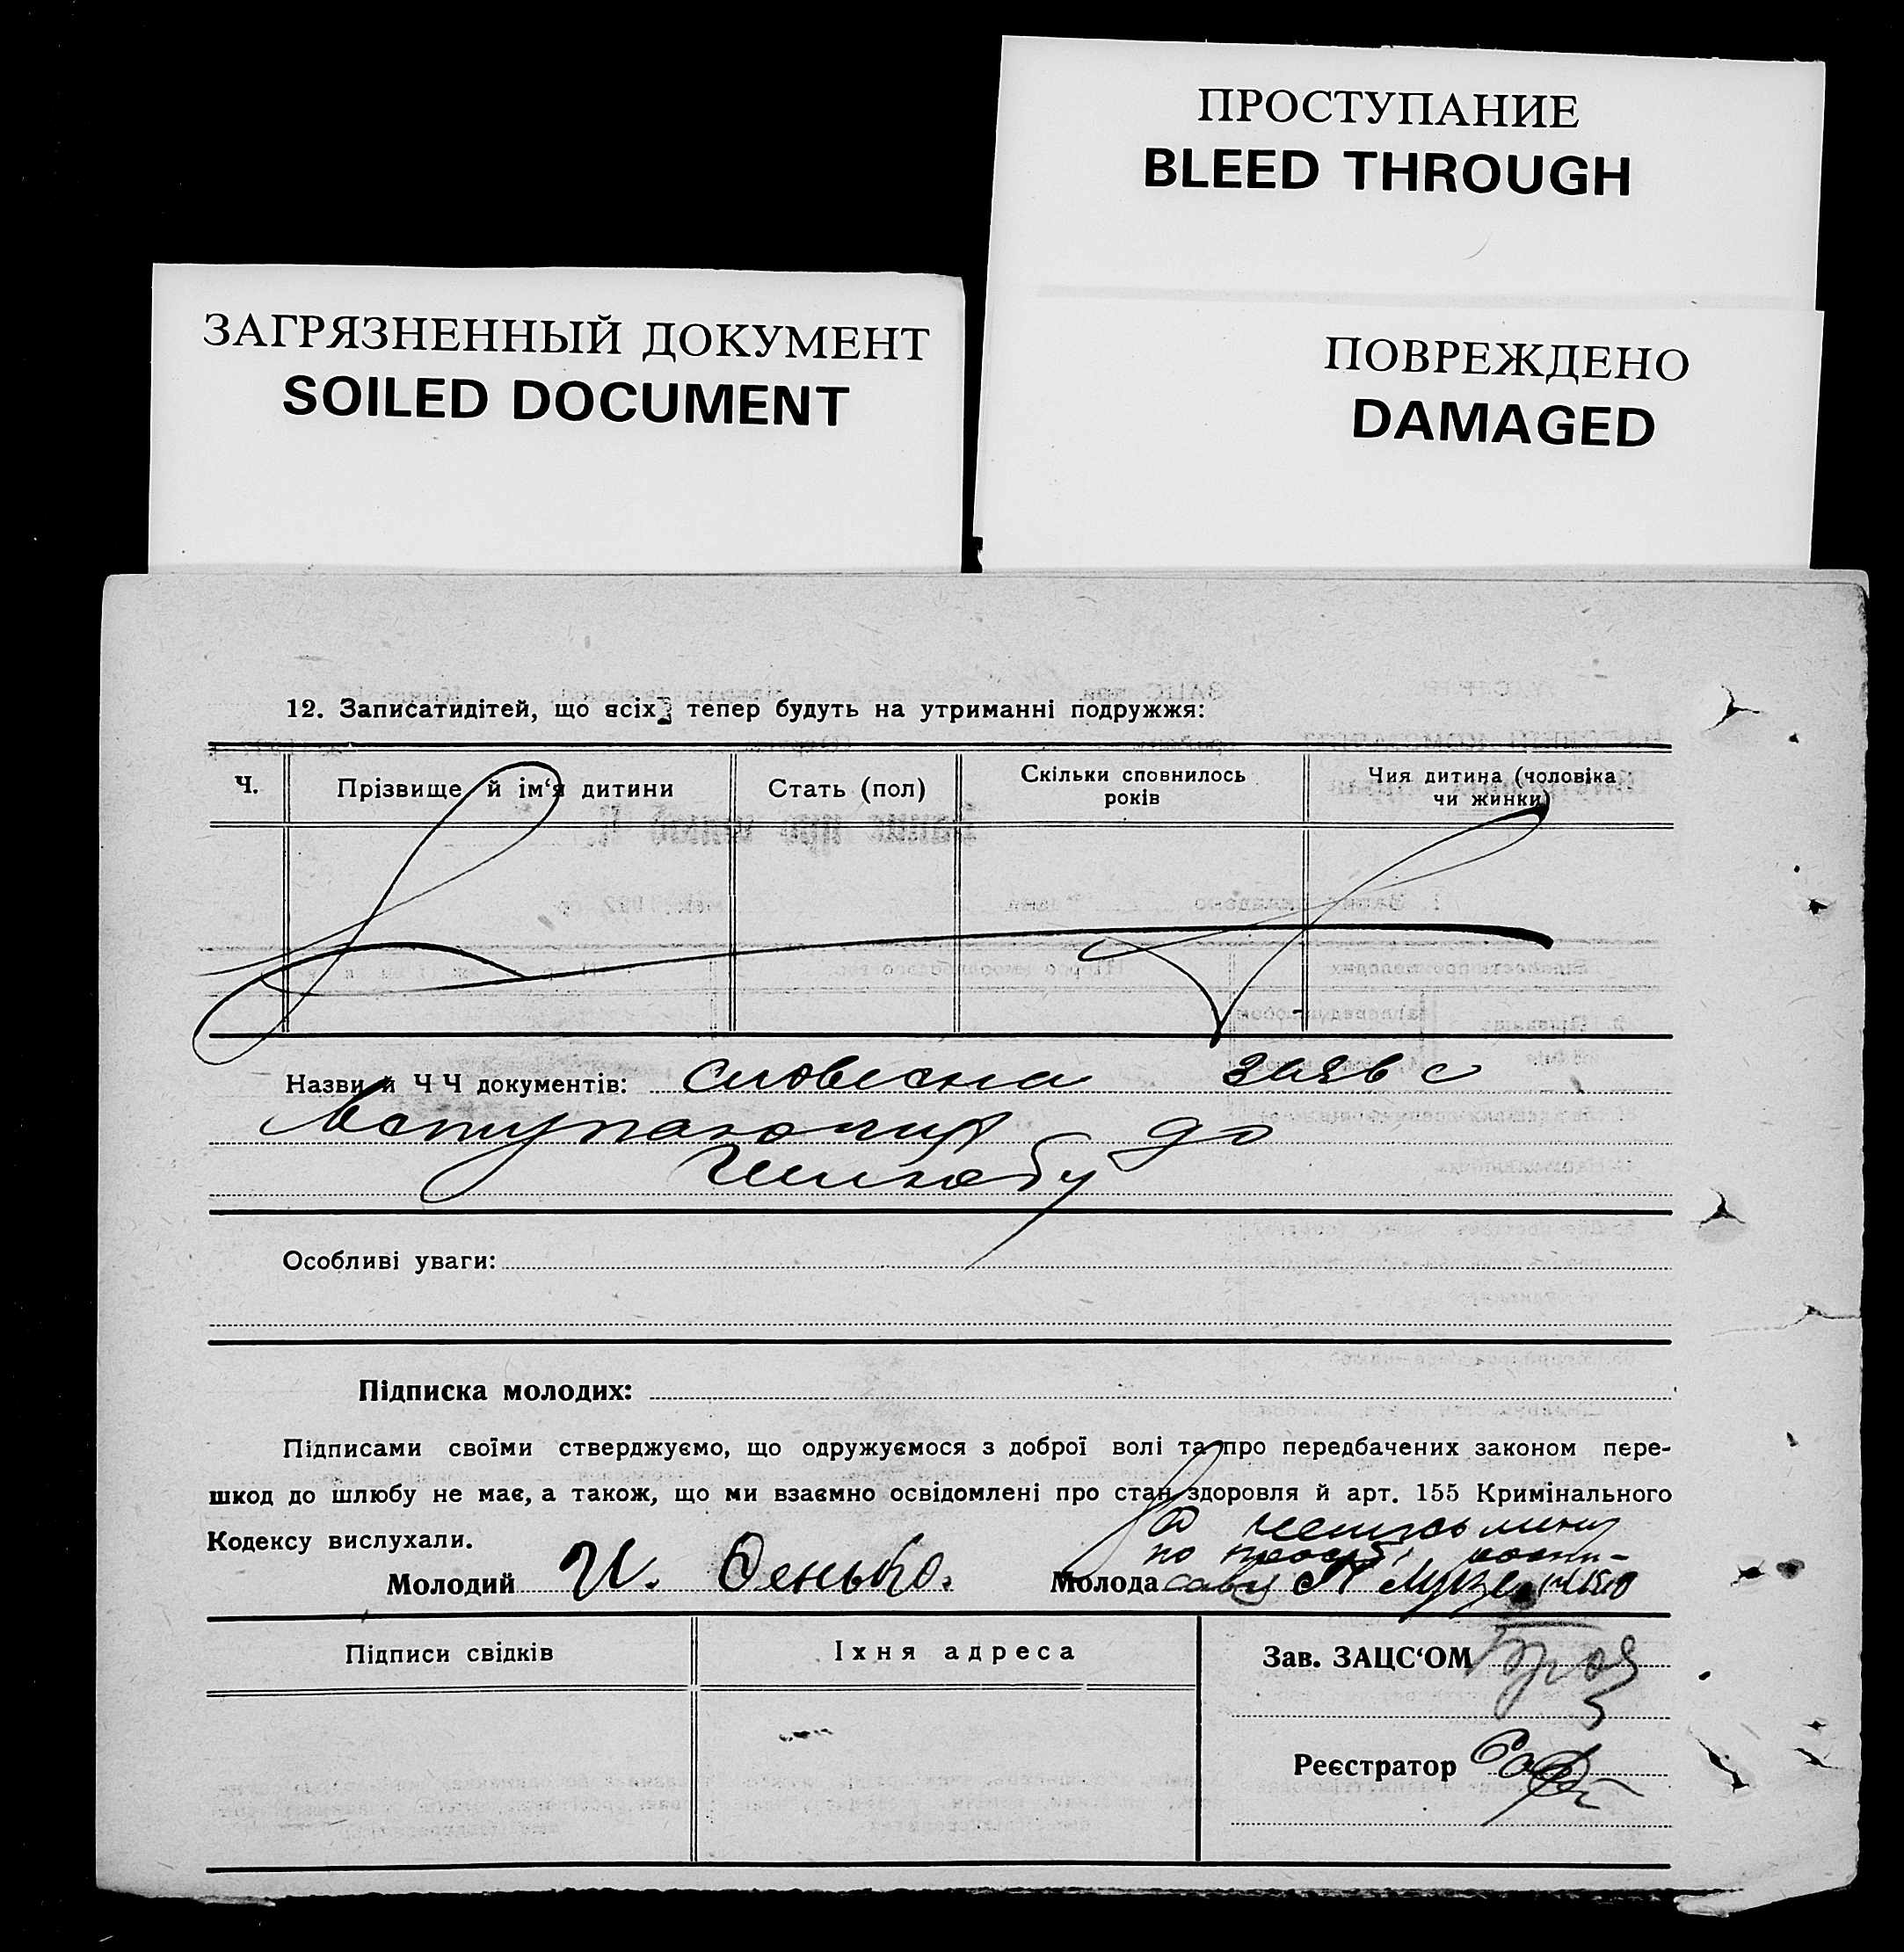 ПРОСТУПАНИЕ
BLEED THROUGH
ЗАГРЯЗНЕННЫЙ ДОКУМЕНТ
SOILED DOCUMENT
ПОВРЕЖДЕНО
DAMAGED
12. Записатидітей, що всіх тепер будуть на утриманні подружжя:
Ч.
Прізвище й ім‘я дитини
Стать (пол)
Скільки сповнилось
років
Чия дитина (чоловіка
чи жинки)
Назви й Ч Ч документів: словесна заява
вступаючих до
шлюбу
Особливі уваги:
Підписка молодих:
Підписами своїми стверджуємо, що одружуємося з доброї волі та про передбачених законом пере-
шкод до шлюбу не має, а також, що ми взаємно освідомлені про стан здоровля й арт. 155 Кримінального
Кодексу вислухали.
Молодий И. Сенько.
Молода
Підписи свідків
Їхня адреса
Зав. ЗАЦС‘ОМ
Реєстратор